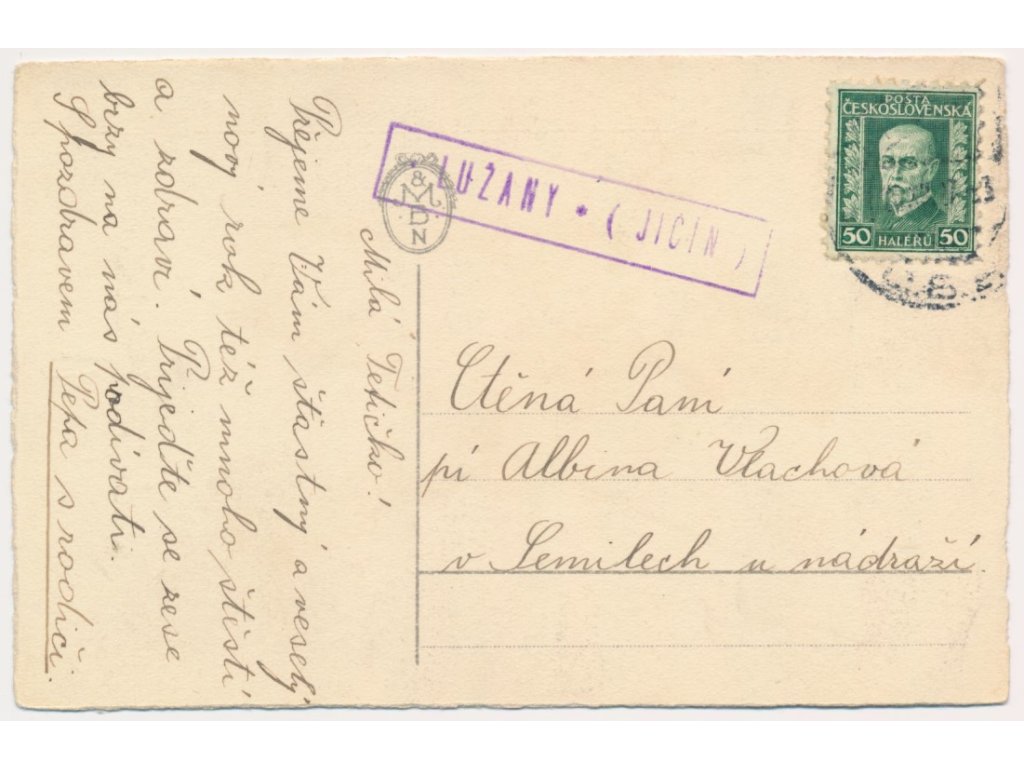 Milá Tetičko!
Přejeme Vám šťastný a veselý
nový rok též mnoho štěstí
a zdraví. Přijeďte se zese
brzy na nás podívati.
S pozdravem Pepa s rodiči.
LUŽANY • (JIČÍN)
& M
D
N
POŠTA
ČESKOSLOVENSKÁ
50 HALÉŘŮ 50
Ctěná Paní
pí Albina Vlachová
v Semilech u nádraží.